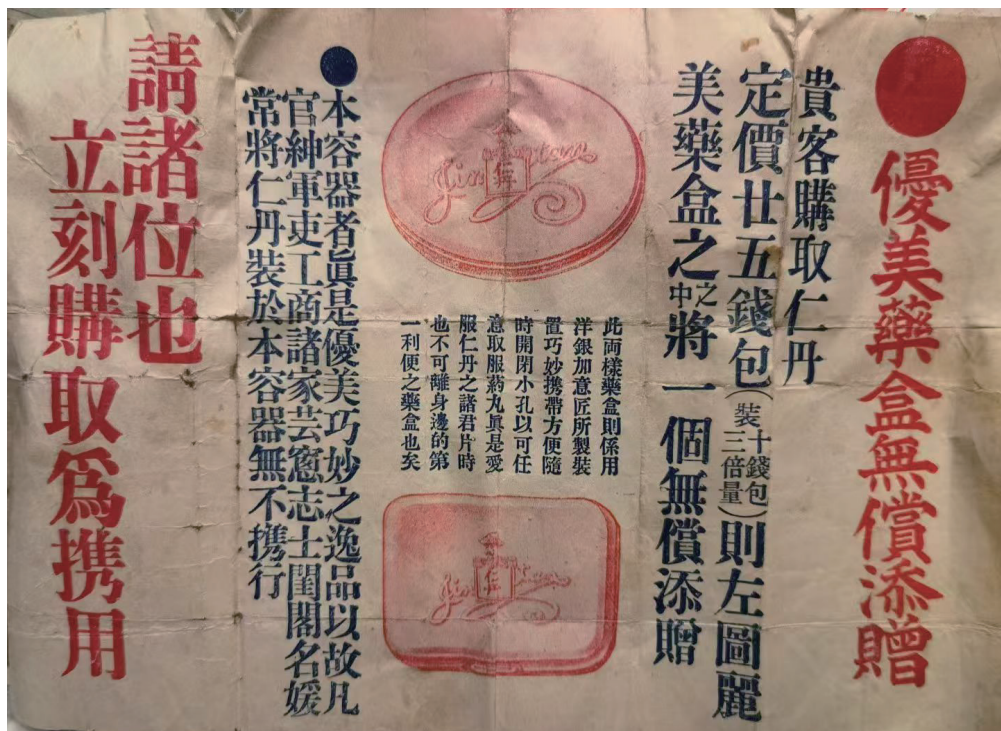 優美藥盒無償添贈
貴客購取仁丹
定價廿五錢包(裝十錢包三倍量)則左圖麗
美藥盒之中之將一個無償添贈
Jintan
仁丹
此兩樣藥盒則係用
洋銀加意匠所製裝
置巧妙携帶方便隨
時開閉小孔以可任
意取服藥丸眞是愛
服仁丹之諸君片時
也不可離身邊的第
一利便之藥盒也矣
Jintan
仁丹
本容器者眞是優美巧妙之逸品以故凡
官紳軍吏工商諸家芸窓志士閨閣名媛
常將仁丹裝於本容器無不携行
請諸位也
立刻購取爲携用